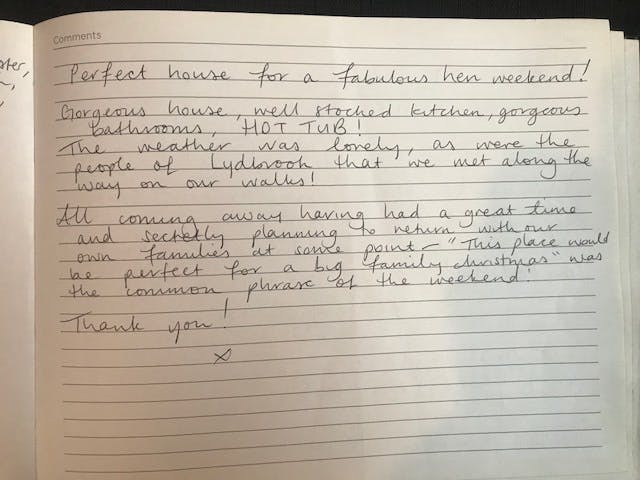 Comments
Perfect house for a fabulous hen weekend!
Gorgeous house, well stocked kitchen, gorgeous
bathrooms, HOT TUB!
The weather was lovely, as were the
people of Lydbrook that we met along the
way on our walks!
All coming away having had a great time
and secretly planning to return with our
own families at some point - "This place would
be perfect for a big family christmas" was
the common phrase of the weekend!
Thank you!
x